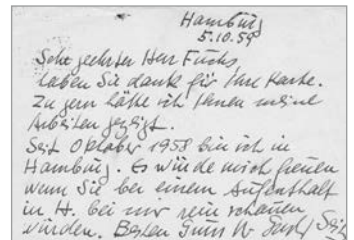 Hamburg
5.10.59
Sehr geehrter Herr Fuchs,
haben Sie dank für Ihre Karte.
Zu gern hätte ich Ihnen meine
Arbeiten gezeigt.
Seit Oktober 1958 bin ich in
Hamburg. Es würde mich freuen
wenn Sie bei einem Aufenthalt
in H. bei mir rein schauen
würden. Besten Gruss Ihr